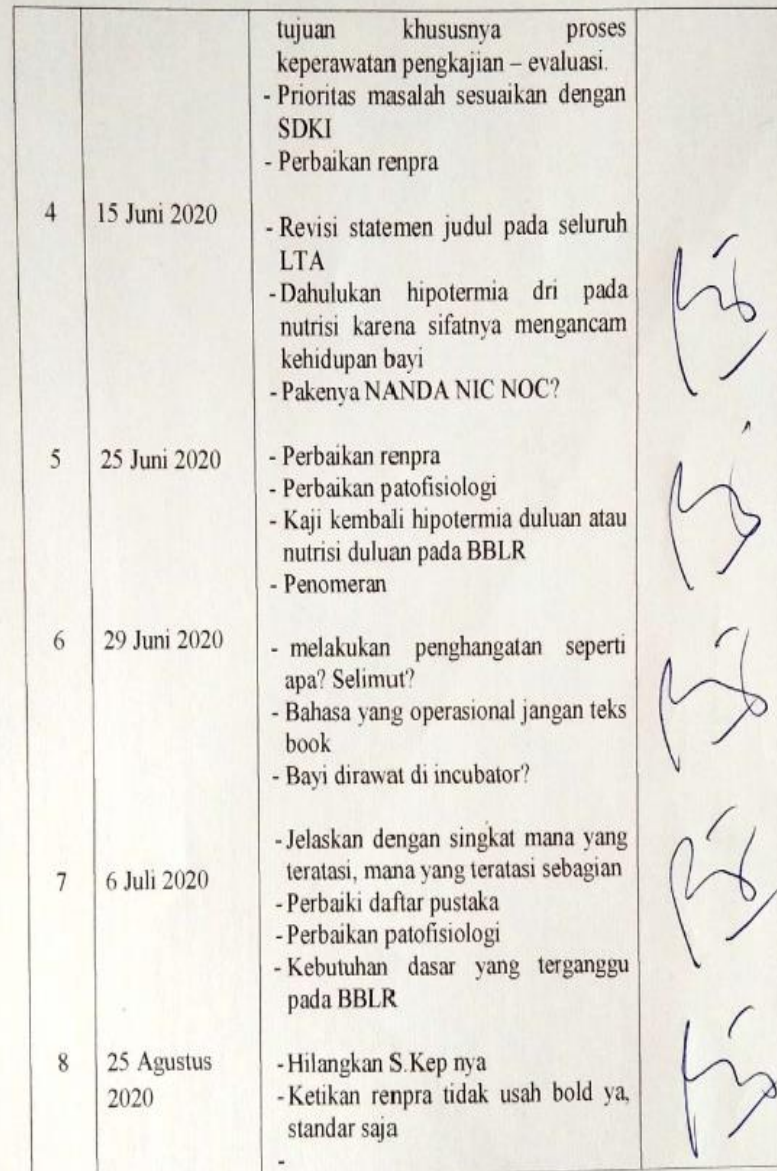 tujuan khususnya proses
keperawatan pengkajian – evaluasi.
- Prioritas masalah sesuaikan dengan
SDKI
- Perbaikan renpra
4 15 Juni 2020
- Revisi statemen judul pada seluruh
LTA
- Dahulukan hipotermia dri pada
nutrisi karena sifatnya mengancam
kehidupan bayi
- Pakenya NANDA NIC NOC?
5 25 Juni 2020 - Perbaikan renpra
- Perbaikan patofisiologi
- Kaji kembali hipotermia duluan atau
nutrisi duluan pada BBLR
- Penomeran
6 29 Juni 2020 - melakukan penghangatan seperti
apa? Selimut?
- Bahasa yang operasional jangan teks
book
- Bayi dirawat di incubator?
- Jelaskan dengan singkat mana yang
7 6 Juli 2020 teratasi, mana yang teratasi sebagian
- Perbaiki daftar pustaka
- Perbaikan patofisiologi
- Kebutuhan dasar yang terganggu
pada BBLR
8 25 Agustus - Hilangkan S.Kep nya
2020 - Ketikan renpra tidak usah bold ya,
standar saja
-